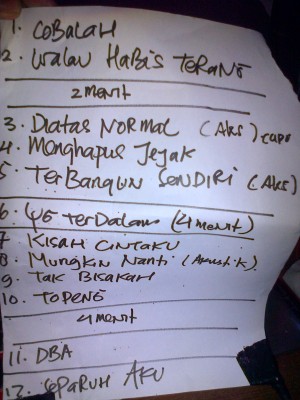 1. COBALAH
2. Walau HaBis TeRANG
2 menit
3. Diatas NORMAL (Aks)
4. Menghapus Jejak
5. TerBangun SENDIRI (Aks)
6. YG TerDalam (4 menit)
7 KISAH CINTAKU
8. Mungkin Nanti (Akustik).
9. Tak BisAKAH
10. TOPENG
4 menit
11. DBA
12. SepaRUH AKU